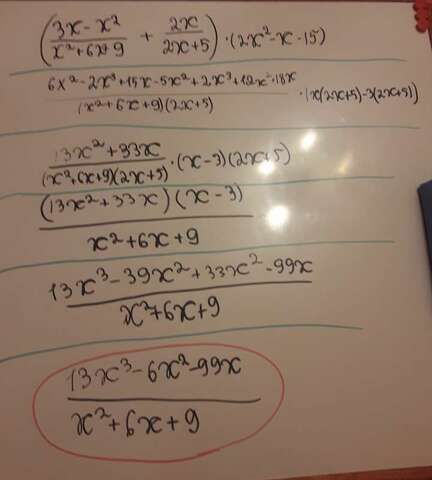 (3x - x²/x²+6x+9 + 2x/2x+5) · (2x² - x - 15)
6x² - 2x³ + 15x - 5x² + 2x³ + 12x² + 18x/(x² + 6x + 9)(2x+5) · (x(2x+5) - 3(2x+5))
13x² + 33x/(x²+6x+9)(2x+5) · (x-3)(2x+5)
(13x² + 33x)(x - 3)/x² + 6x + 9
13x³ - 39x² + 33x² - 99x/x² + 6x + 9
13x³ - 6x² - 99x/x² + 6x + 9